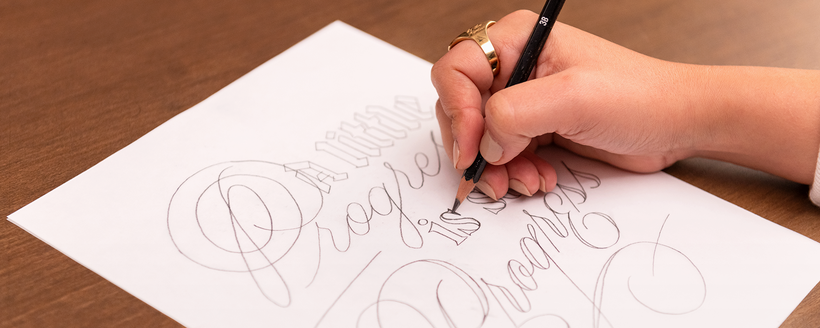 3B
A little
Progre
is
Progress